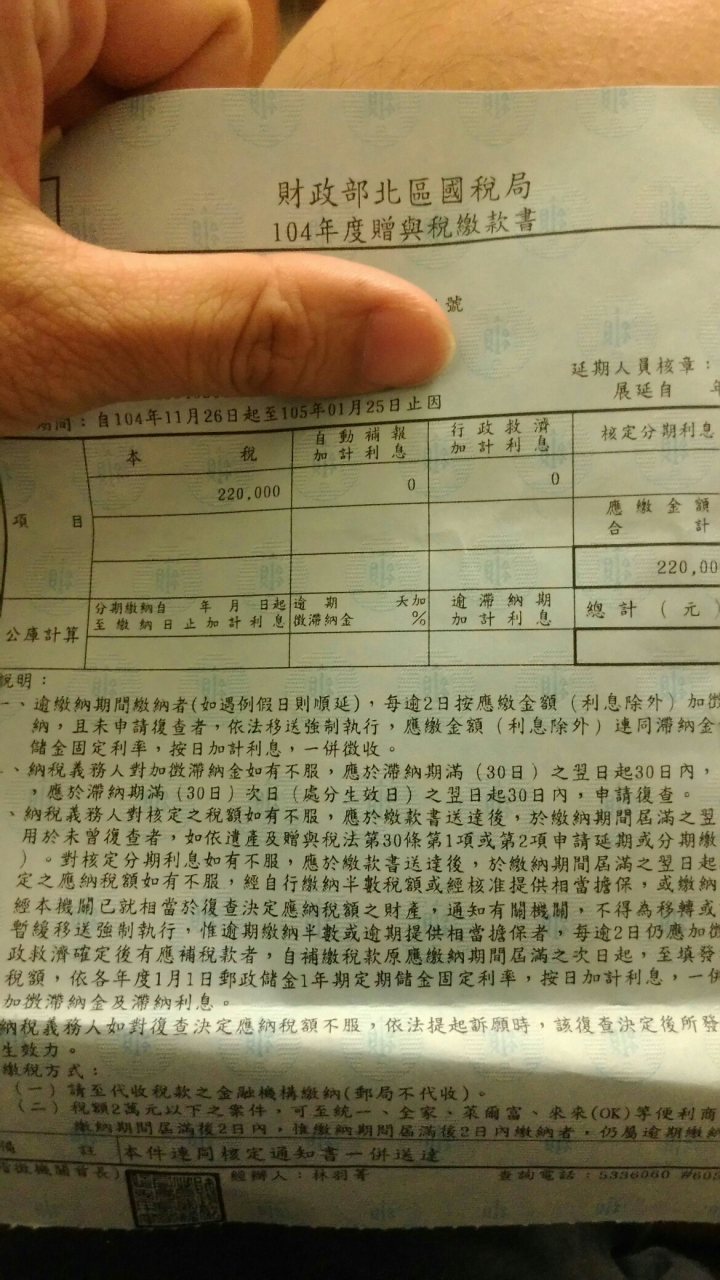 財政部北區國稅局
104年度贈與稅繳款書
號
延期人員核章：
展延自 年
期間：自104年11月26日起至105年01月25日止因
項目
本稅
自動補報加計利息
行政救濟加計利息
核定分期利息
220,000
0
0
應繳金額合計
220,00
公庫計算
分期繳納自 年 月 日起至繳納日止加計利息
逾期 天加徵滯納金 %
逾滯納期加計利息
總計（元）
說明：
一、逾繳納期間繳納者(如遇例假日則順延)，每逾2日按應繳金額（利息除外）加徵
納，且未申請復查者，依法移送強制執行，應繳金額（利息除外）連同滯納金
儲金固定利率，按日加計利息，一併徵收。
、納稅義務人對加徵滯納金如有不服，應於滯納期滿（30日）之翌日起30日內，
，應於滯納期滿（30日）次日（處分生效日）之翌日起30日內，申請復查。
、納稅義務人對核定之稅額如有不服，應於繳款書送達後，於繳納期間屆滿之翌
用於未曾復查者，如依遺產及贈與稅法第30條第1項或第2項申請延期或分期繳
）。對核定分期利息如有不服，應於繳款書送達後，於繳納期間屆滿之翌日起
定之應納稅額如有不服，經自行繳納半數稅額或經核准提供相當擔保，或繳納
經本機關已就相當於復查決定應納稅額之財產，通知有關機關，不得為移轉或
暫緩移送強制執行，惟逾期繳納半數或逾期提供相當擔保者，每逾2日仍應加徵
政救濟確定後有應補稅款者，自補繳稅款原應繳納期間屆滿之次日起，至填發
稅額，依各年度1月1日郵政儲金1年期定期儲金固定利率，按日加計利息，一併
加徵滯納金及滯納利息。
納稅義務人如對復查決定應納稅額不服，依法提起訴願時，該復查決定後所發
生效力。
繳稅方式：
（一）請至代收稅款之金融機構繳納(郵局不代收)。
（二）稅額2萬元以下之案件，可至統一、全家、萊爾富、來來(OK)等便利商
繳納期間屆滿後2日內，惟繳納期間屆滿後2日內繳納者，仍屬逾期繳納
備註 本件連同核定通知書一併送達
機關首長)
經辦人：林羽菁
查詢電話：5336060 #605